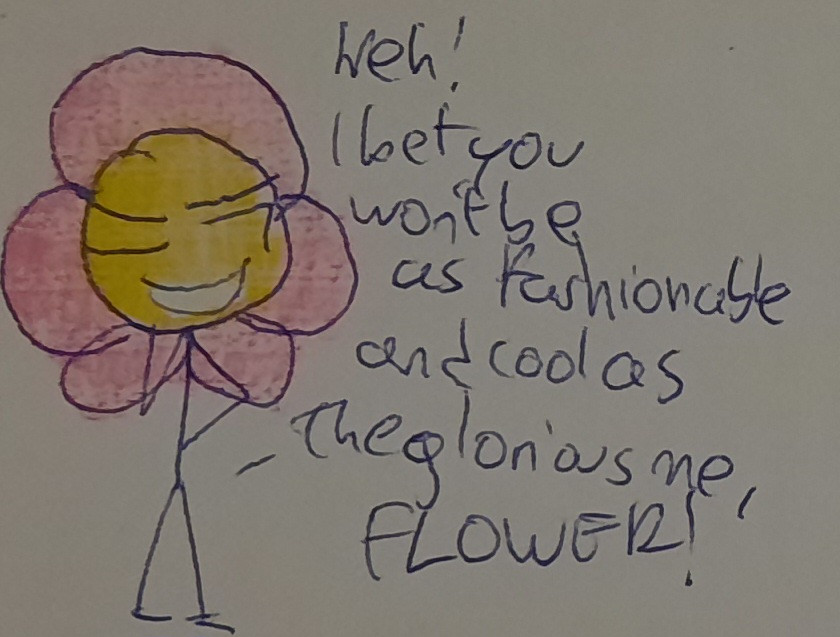 Heh!
I bet you
won't be
as fashionable
and cool as
the glorious me,
FLOWER!